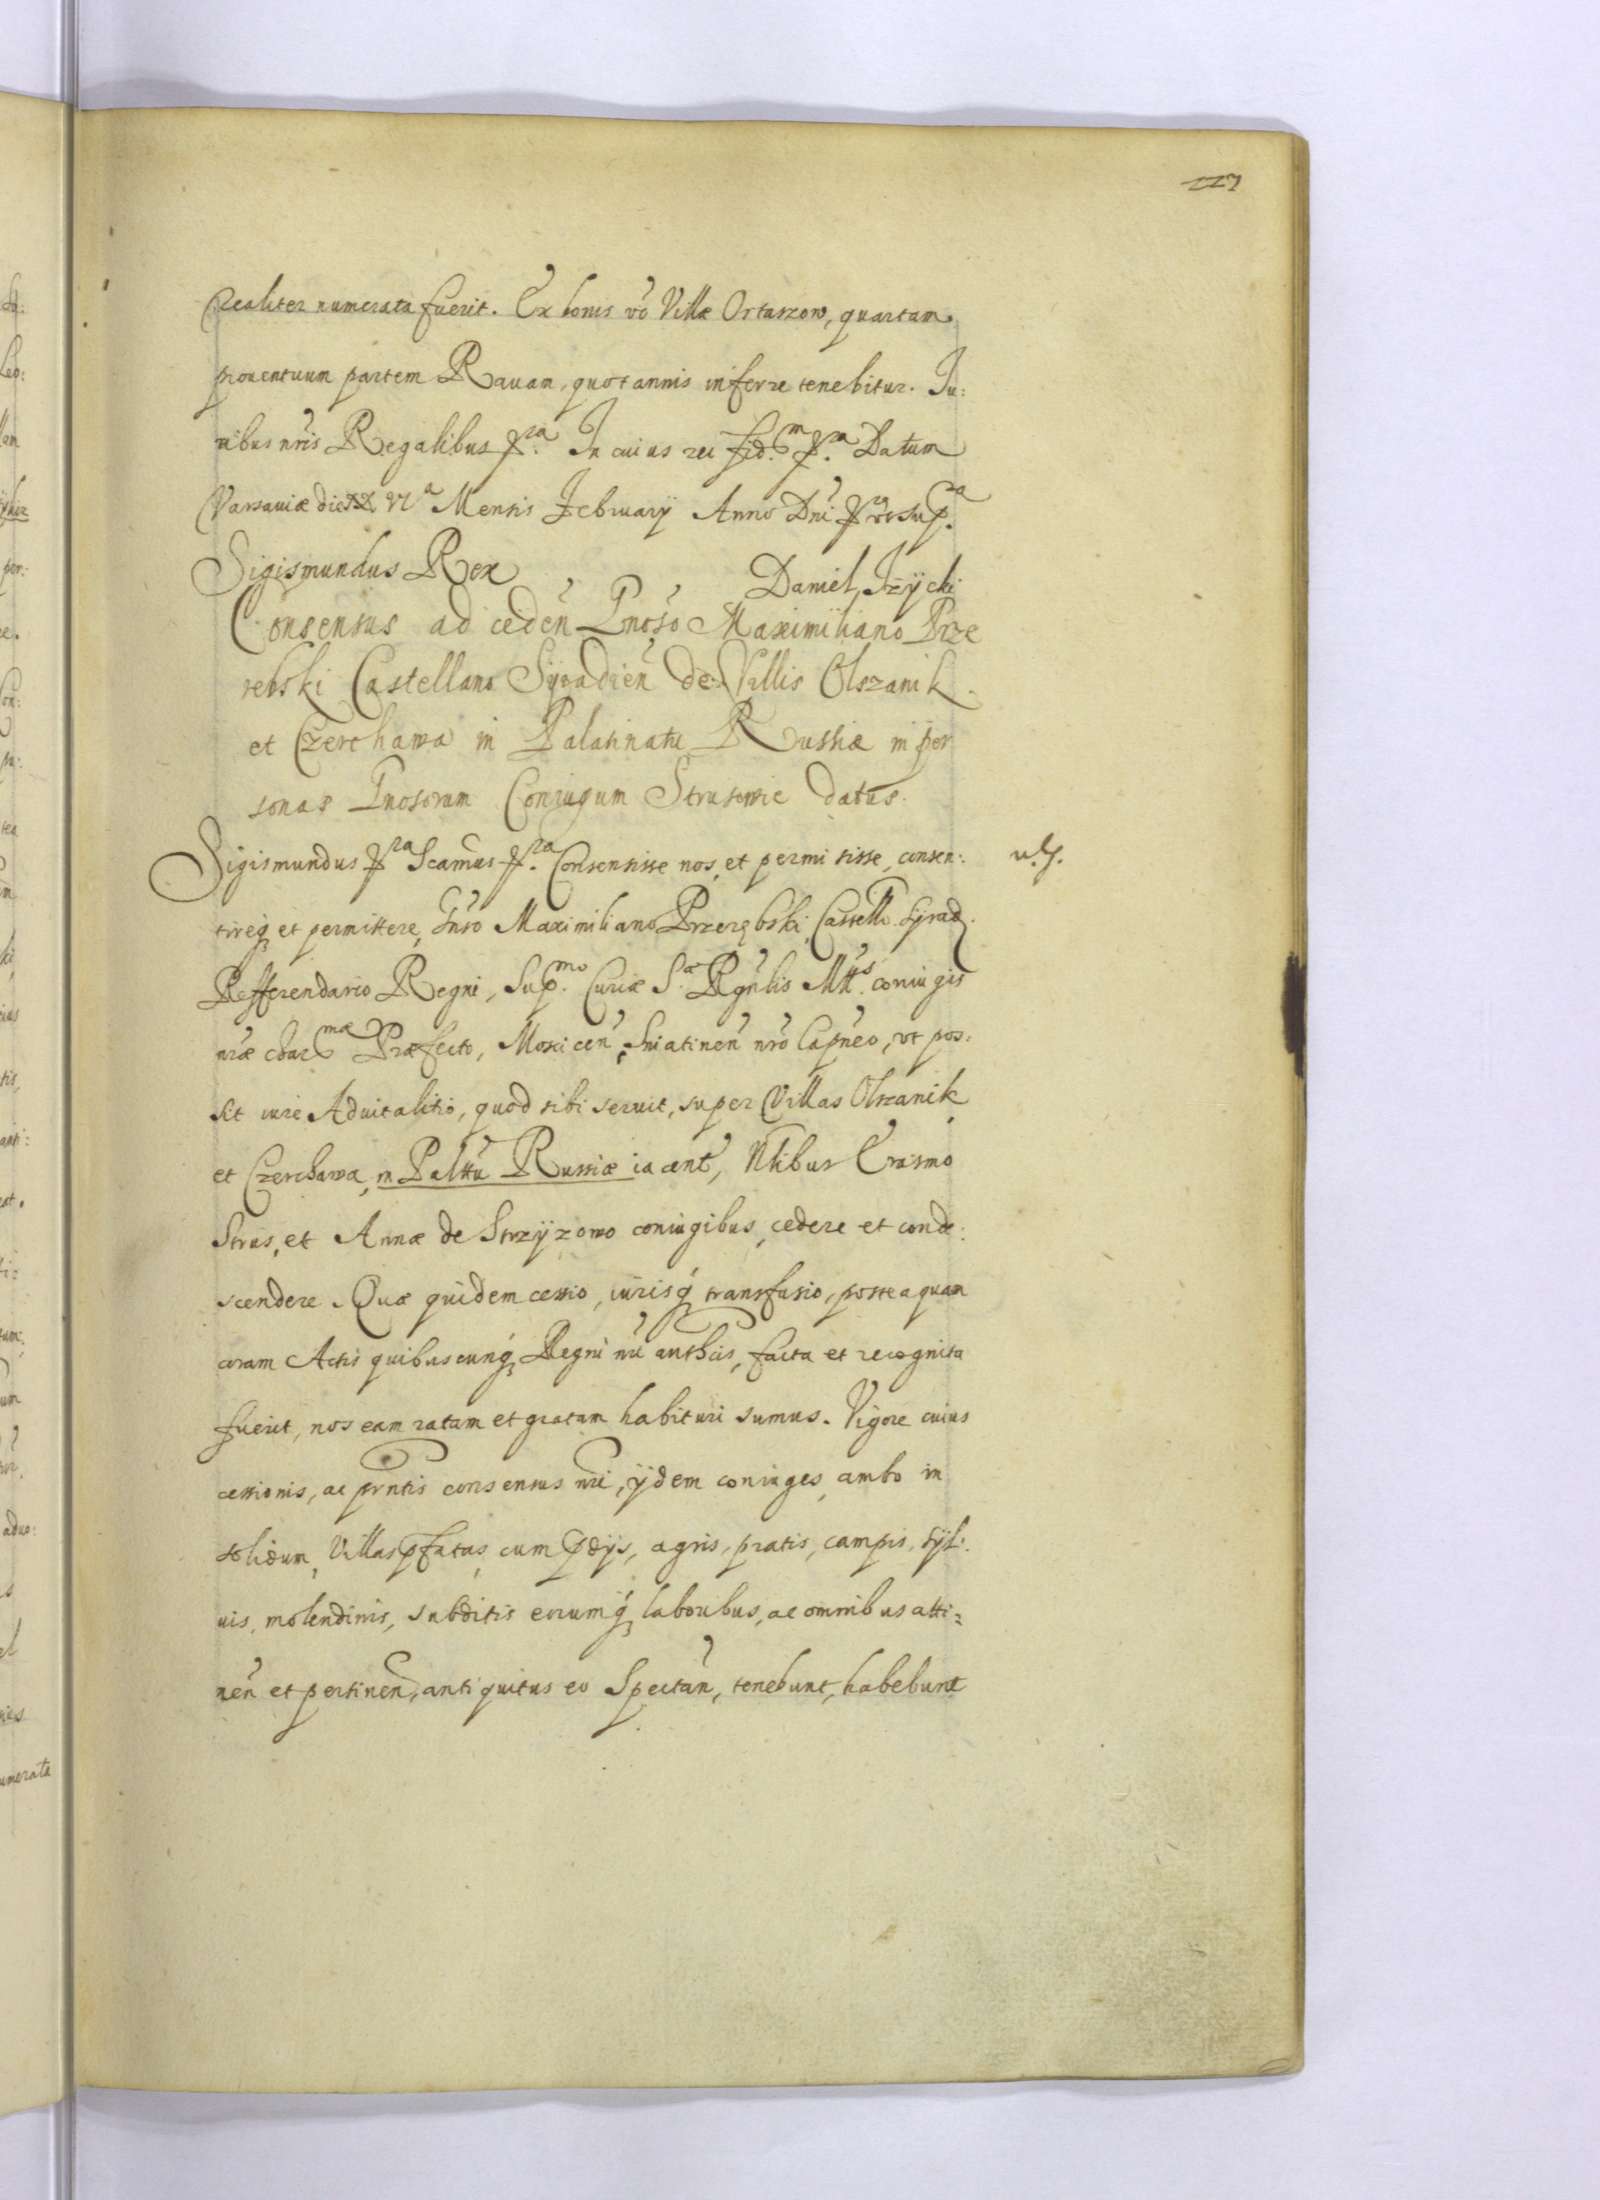 227
realiter numerata fuerit. Ex bonis vo Villæ Ostaszow, quartam
prouentuum partem Rauam, quotannis inferre tenebitur. Iu:
ribus nris Regalibus In cuius rei fid.m Datum
Varsauiæ die Mensis February Anno Dni vt sup.a
Sigismundus Rex
Daniel Iżycki
Consensus ad ceden Gnoso Maximiliano Prze
rebski Castellano Syradien de Villis Olszanik
et Czerchawa in Palatinatu Russiæ in per
sonas Gnosorum Coniugum Strusowie datus.
Sigismundus Scamus Consensisse nos, et permisisse, consen:
tireq et permittere, Gnso Maximiliano Przerębski, Castell. Syrad.
Refferendario Regni, Sup.mo Curiæ S.æ Rgnlis Mtts. coniugis
nræ char.mæ Præfecto, Moscicen, Sniatinen nro Capneo, vt pos:
sit iure Aduitalitio, quod sibi seruit, super Villas Olszanik
et Czerchawa, in Palttu Russiæ iacent, Nlibus Erasmo
Strus, et Annæ de Strzyzowo coniugibus, cedere et conde:
scendere. Quæ quidem cessio, iurisq transfusio, posteaquam
coram Actis quibuscunq Regni nri authcis, facta et recognita
fuerit, nos eam ratam et gratam habituri sumus. Vigore cuius
cessionis, ac prntis consensus nri, ijdem coniuges, ambo in
solidum, Villas pfatas, cum pdijs, agris, pratis, campis, syl:
uis, molendinis, subditis eorumq laboribus, ac omnibus atti:
nen et pertinen, antiquitus eo Spectan, tenebunt, habebunt